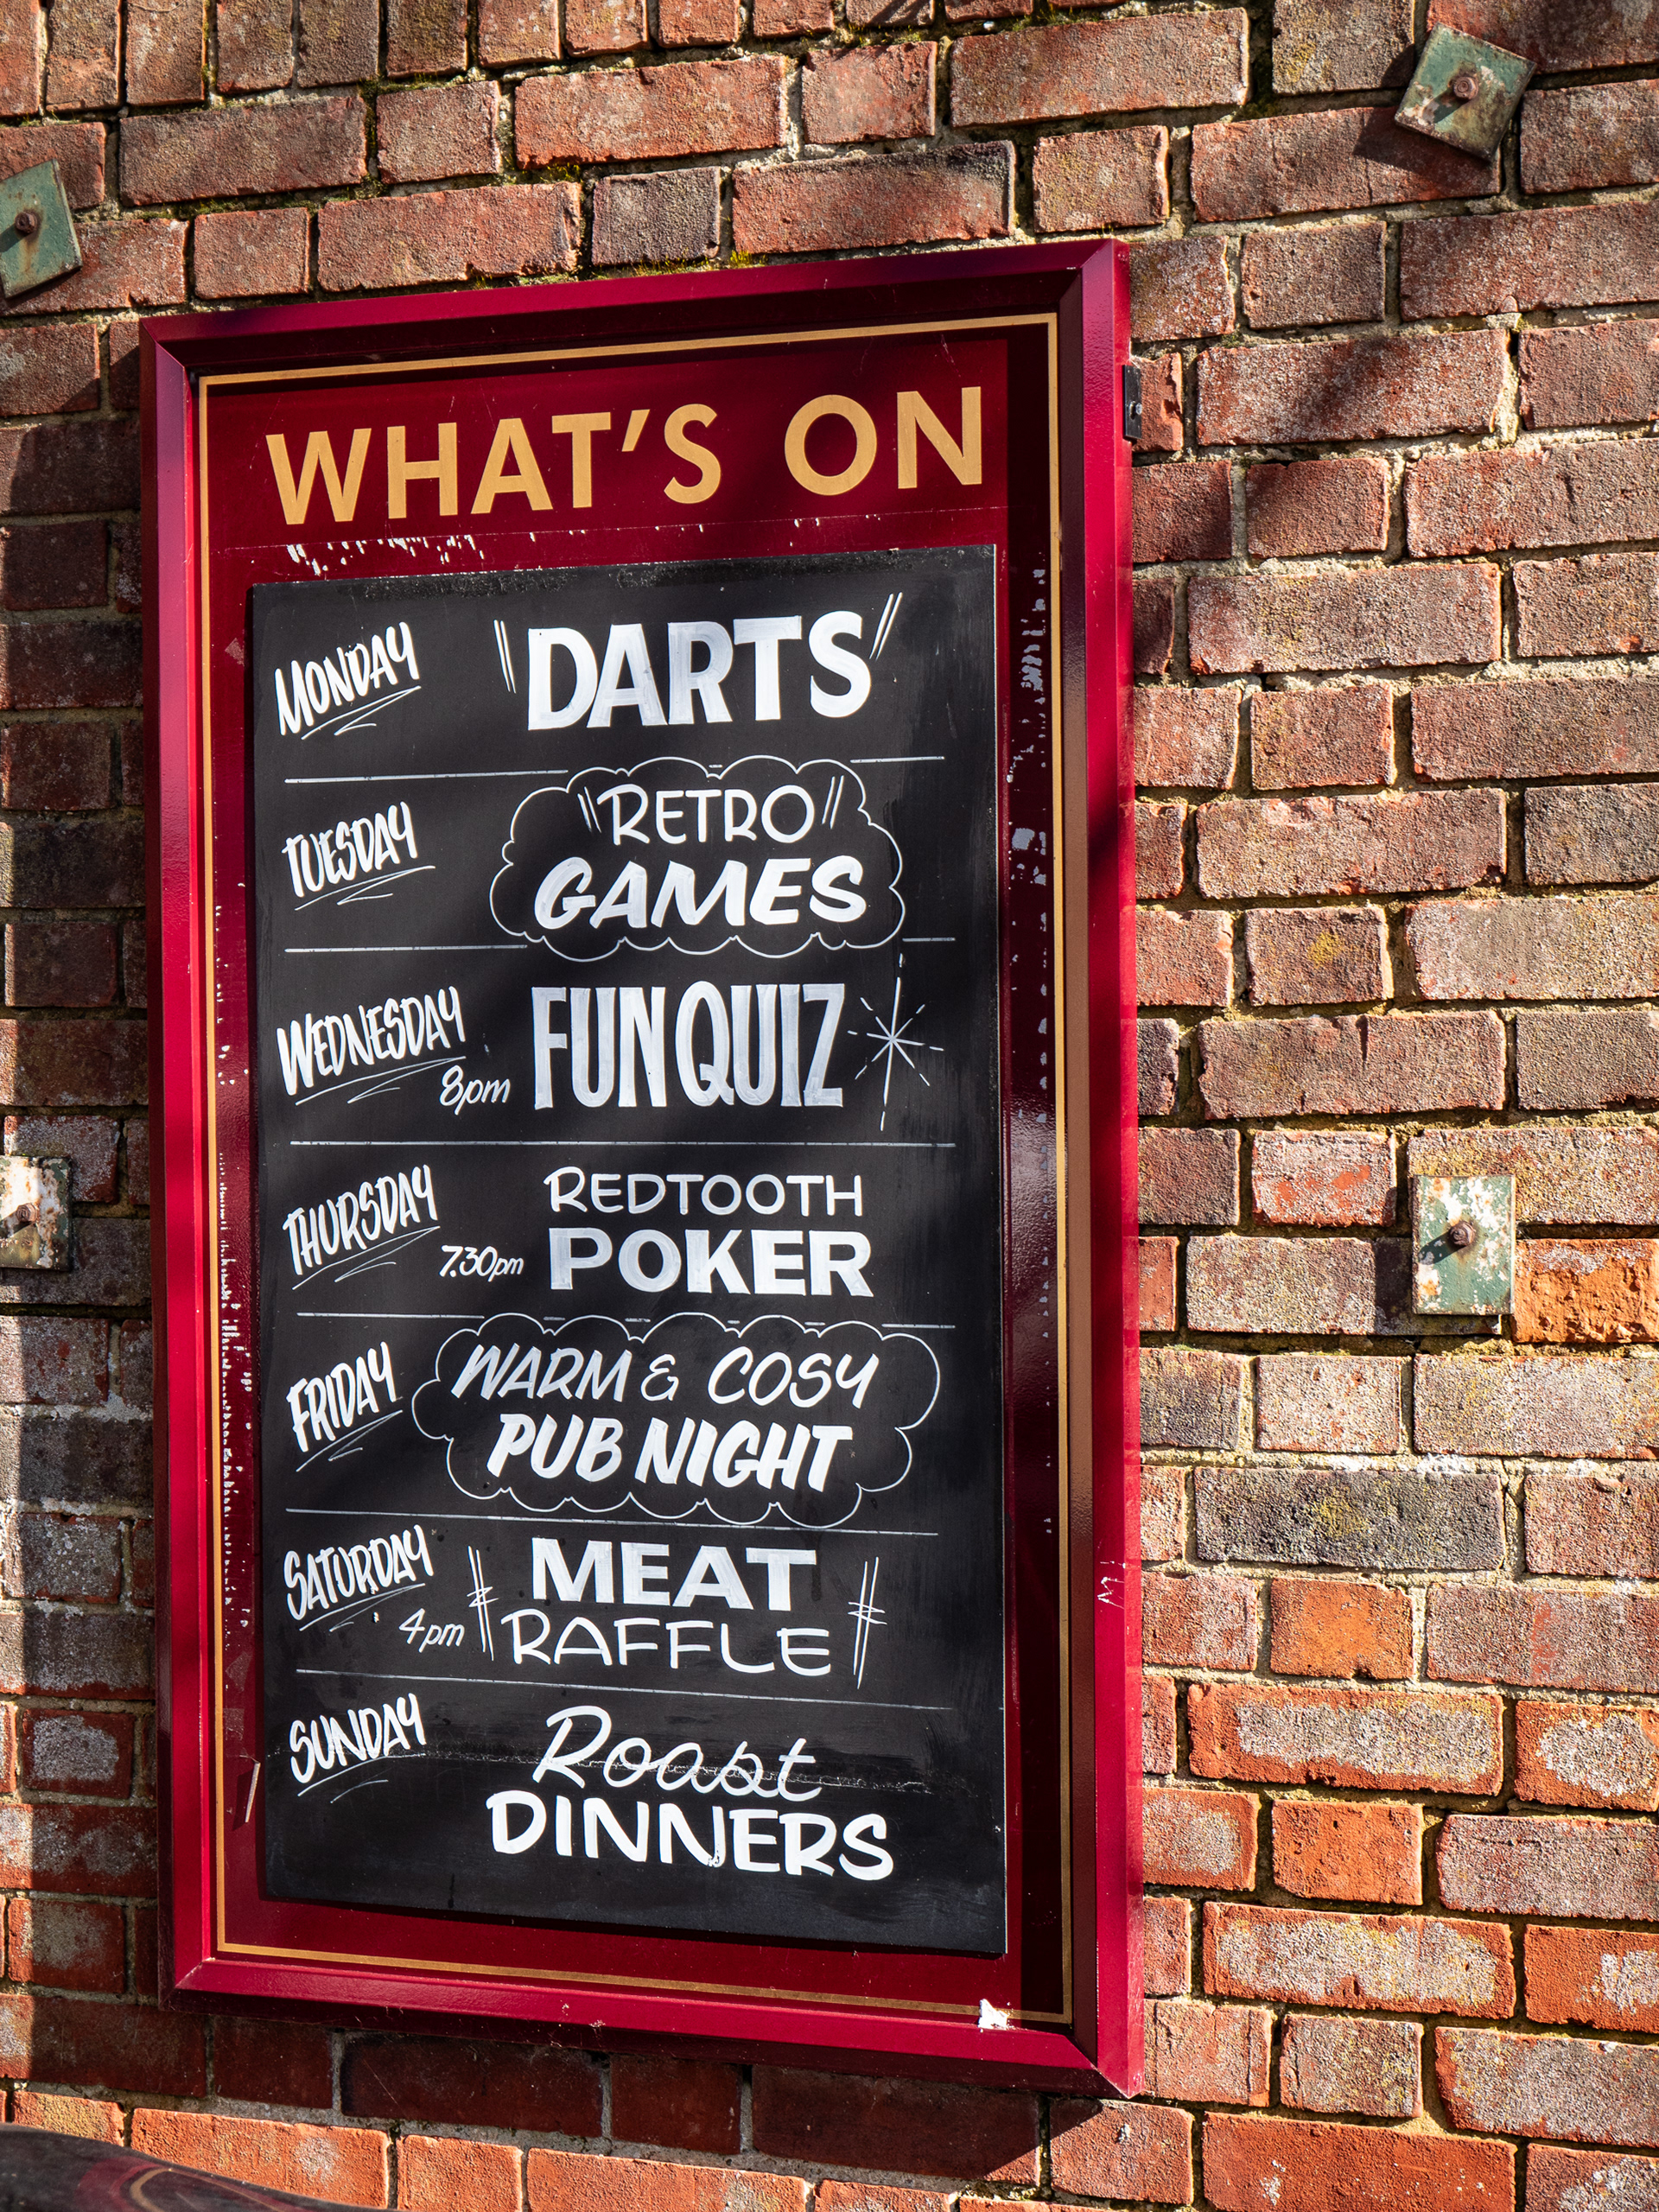 WHAT'S ON
MONDAY "DARTS"
TUESDAY "RETRO"
GAMES
WEDNESDAY FUN QUIZ
8pm
THURSDAY REDTOOTH
7.30pm POKER
FRIDAY WARM & COSY
PUB NIGHT
SATURDAY MEAT
4pm RAFFLE
SUNDAY Roast
DINNERS